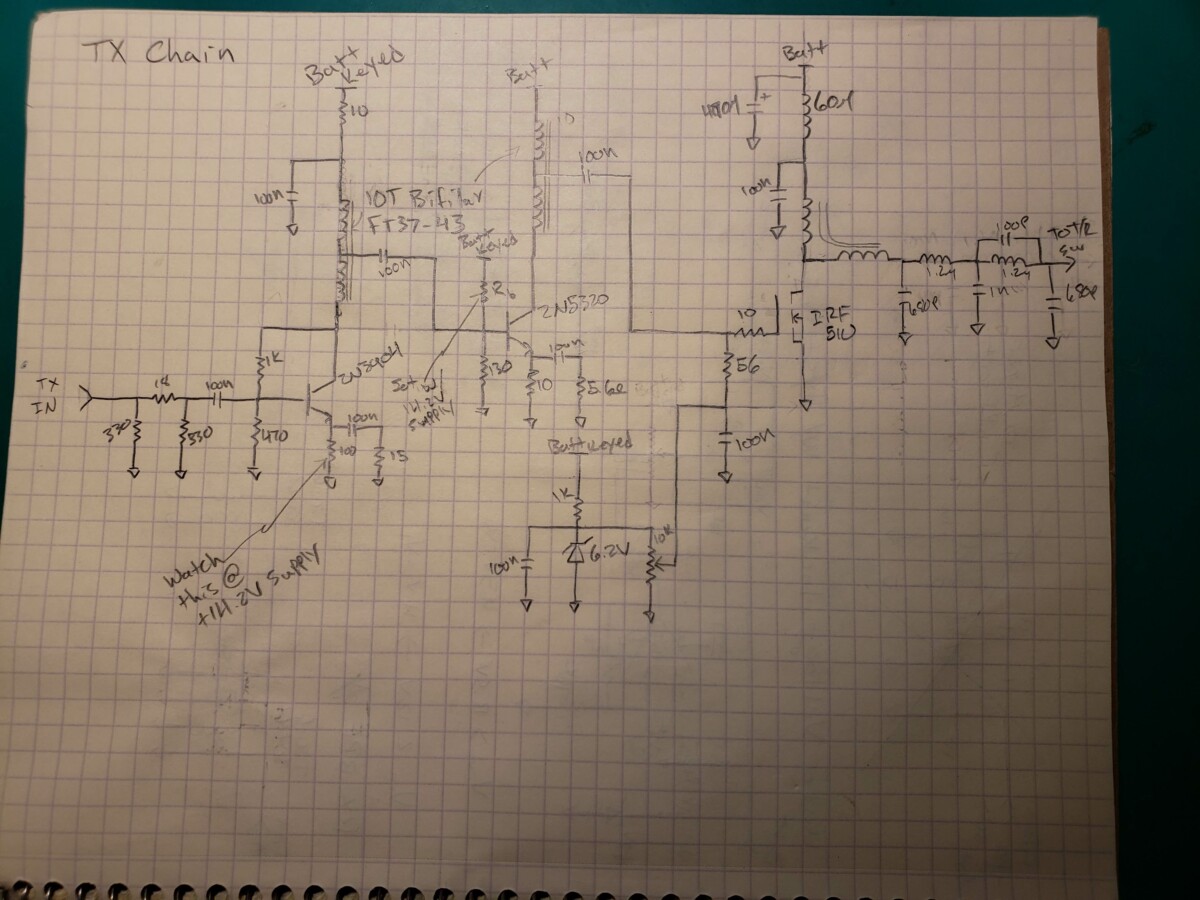 TX Chain
Batt
Keyed
10
100n
10T Bifilar
FT37-43
100n
1K
2N3904
TX
IN
18
100n
330
330
470
100
100n
15
Watch
this @
+14.2V Supply
Batt
100n
Batt
Keyed
Rb
2N5320
130
100n
10
5.6Ω
Set w/
14.2V
Supply
Batt Keyed
1K
100n
6.2V
10K
Batt
100n
10
IRF
510
56
100n
680p
1.2u
1n
100p
1.2u
680p
To T/R
SW